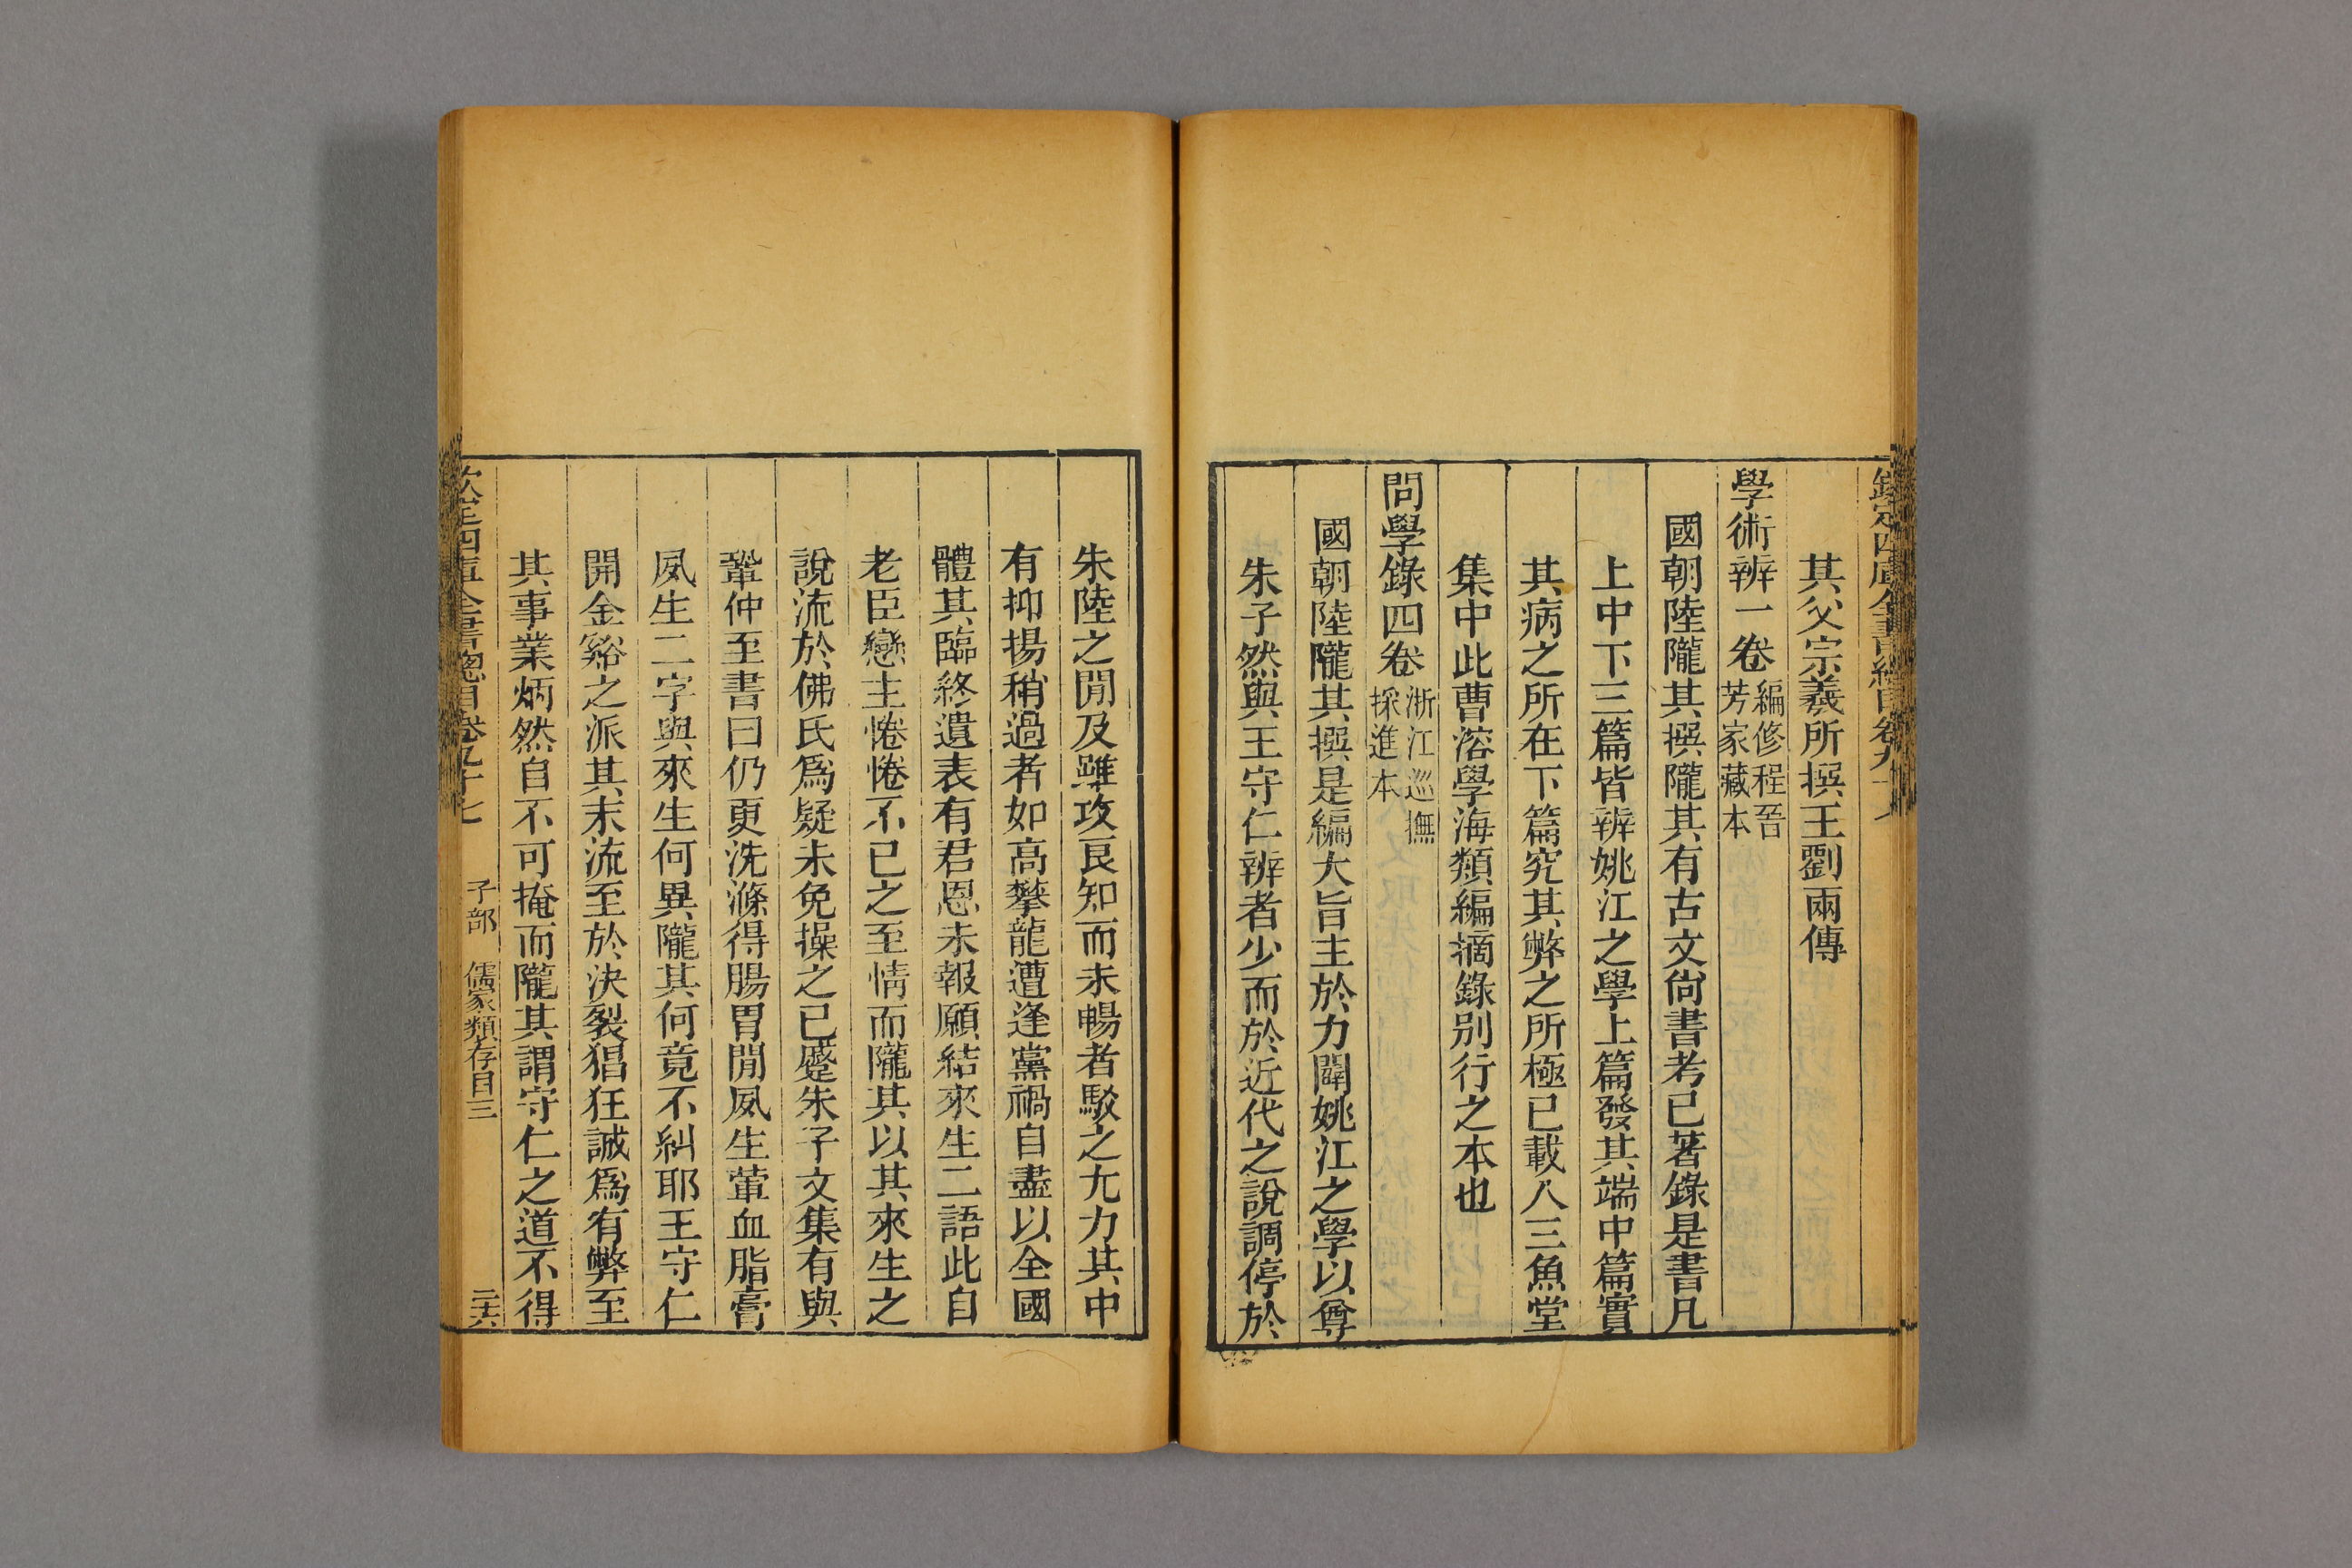 其父宗羲所撰王劉兩傳
學術辨一卷 編修程晉芳家藏本
國朝陸隴其撰隴其有古文尙書考已著錄是書凡
上中下三篇皆辨姚江之學上篇發其端中篇實
其病之所在下篇究其弊之所極已載入三魚堂
集中此曹溶學海類編摘錄別行之本也
問學錄四卷 浙江巡撫採進本
國朝陸隴其撰是編大旨主於力闢姚江之學以尊
朱子然與王守仁辨者少而於近代之說調停於
朱陸之閒及雖攻良知而未暢者駁之尤力其中
有抑揚稍過者如高攀龍遭逢黨禍自盡以全國
體其臨終遺表有君恩未報願結來生二語此自
老臣戀主惓惓不已之至情而隴其以其來生之
說流於佛氏爲疑未免操之已蹙朱子文集有與
鞏仲至書曰仍更洗滌得腸胃閒夙生葷血脂膏
夙生二字與來生何異隴其何竟不糾耶王守仁
開金谿之派其末流至於決裂猖狂誠爲有弊至
其事業炳然自不可掩而隴其謂守仁之道不得
欽定四庫全書總目卷九十七 子部 儒家類存目三 二六